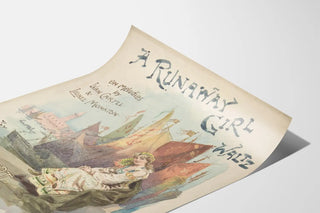 A RUNAWAY
GIRL
WALTZ
ON MELODIES
BY
IVAN CARYLL
&
LIONEL MONCKTON